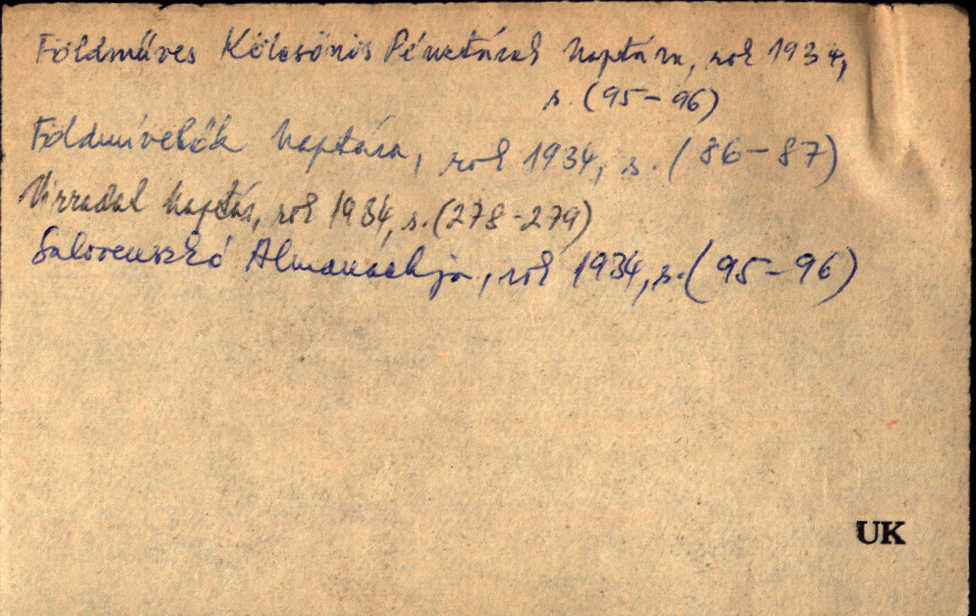 Földműves Kölcsönös Pénztárak Naptára, rok 1934,
s. (95-96)
Földmívelők Naptára, rok 1934, s. (86-87)
Virradat Naptár, rok 1934, s. (278-279)
Slovenszkó Almanachja, rok 1934, s. (95-96)
UK